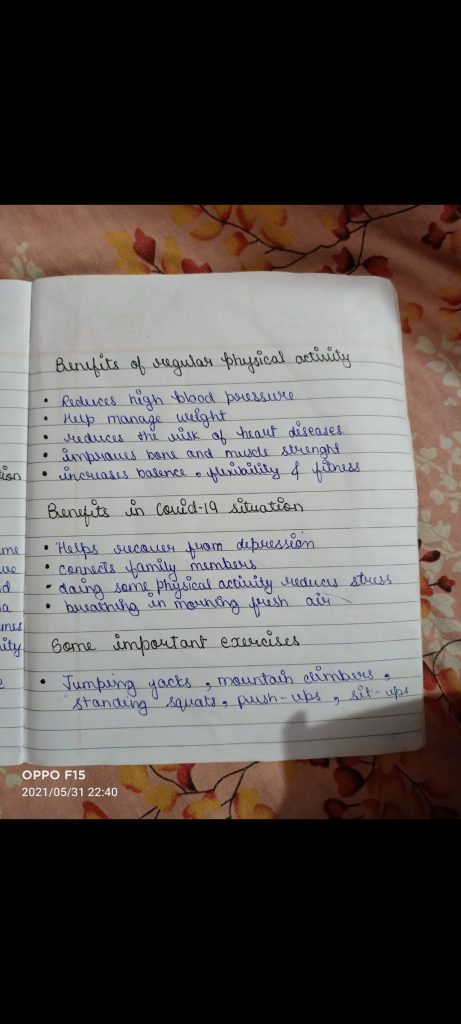 Benefits of regular physical activity
• Reduces high blood pressure
• Help manage weight
• reduces the risk of heart diseases
• improves bone and muscle strenght
• increases balence, flexibility & fitness
Benefits in Covid-19 situation
• Helps recover from depression
• connects family members
• doing some physical activity reduces stress
• breathing in morning fresh air
Some important exercises
• Jumping yacks, mountain climbers,
standing squats, push-ups, sit-ups
ion
me
d
a
mes
ity
e
OPPO F15
2021/05/31 22:40